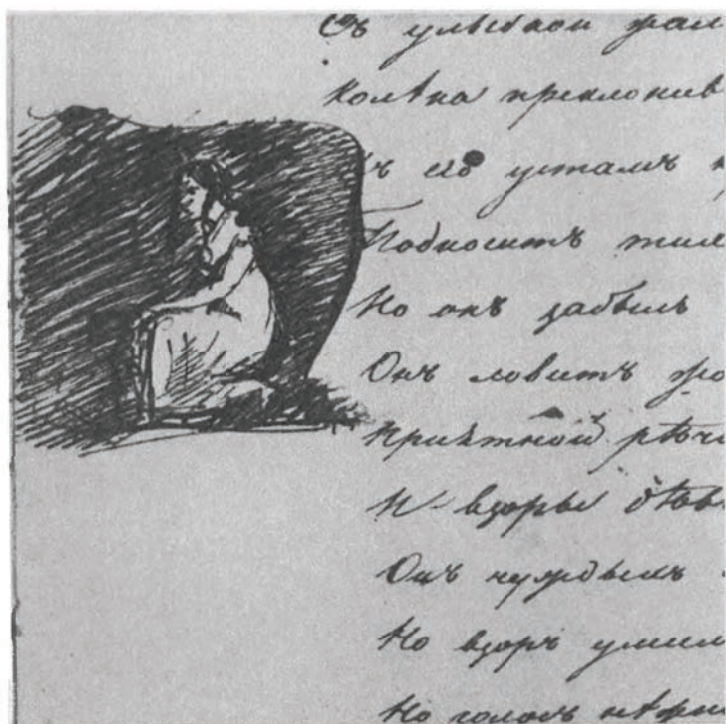 Съ улыбкой жал
Колѣна преклонив
Къ его устамъ
Подноситъ тих
Но онъ забылъ
Онъ ловитъ жа
Приятной рѣчи
И взоры дѣв
Онъ чуждыхъ
Но взоръ умил
Но голосъ нѣжн